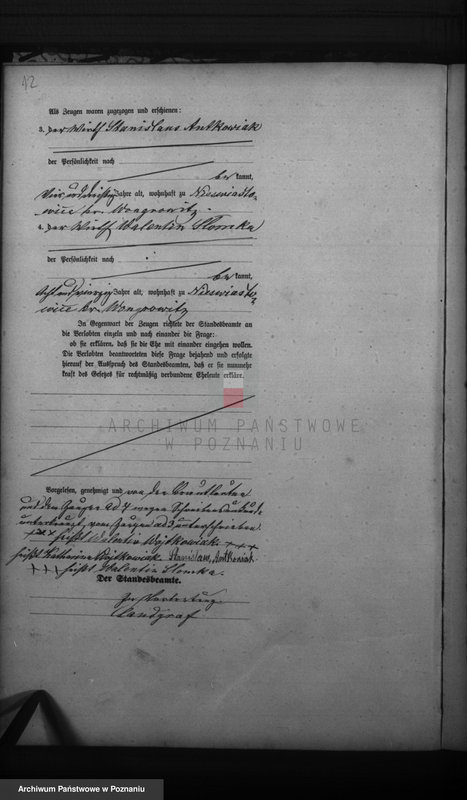 12
Als Zeugen waren zugezogen und erschienen:
3. der Wirth Stanislaus Antkowiak
der Persönlichkeit nach
be kannt,
Vier und dreißig Jahre alt, wohnhaft zu Niewiasto-
wice Kr. Wongrowitz
4. der Wirth Valentin Slomka
der Persönlichkeit nach
be kannt,
Acht und vierzig Jahre alt, wohnhaft zu Niewiasto-
wice Kr. Wongrowitz
In Gegenwart der Zeugen richtete der Standesbeamte an
die Verlobten einzeln und nach einander die Frage:
ob sie erklären, daß sie die Ehe mit einander eingehen wollen.
Die Verlobten beantworteten diese Frage bejahend und erfolgte
hierauf der Ausspruch des Standesbeamten, daß er sie nunmehr
kraft des Gesetzes für rechtmäßig verbundene Eheleute erkläre.
ARCHIWUM PAŃSTWOWE
W POZNANIU
Vorgelesen, genehmigt und von den Brautleuten
und dem Zeugen ad 4 wegen Schreibensunkunde
unterkreuzt, vom Zeugen ad 3 unterschrieben.
+++ heißt Valentin Wojtkowiak +++
heißt Katharina Wojtkowiak Stanislaus Antkowiak
+++ heißt Valentin Slomka.
Der Standesbeamte.
In Vertretung
Landgraf
Archiwum Państwowe w Poznaniu